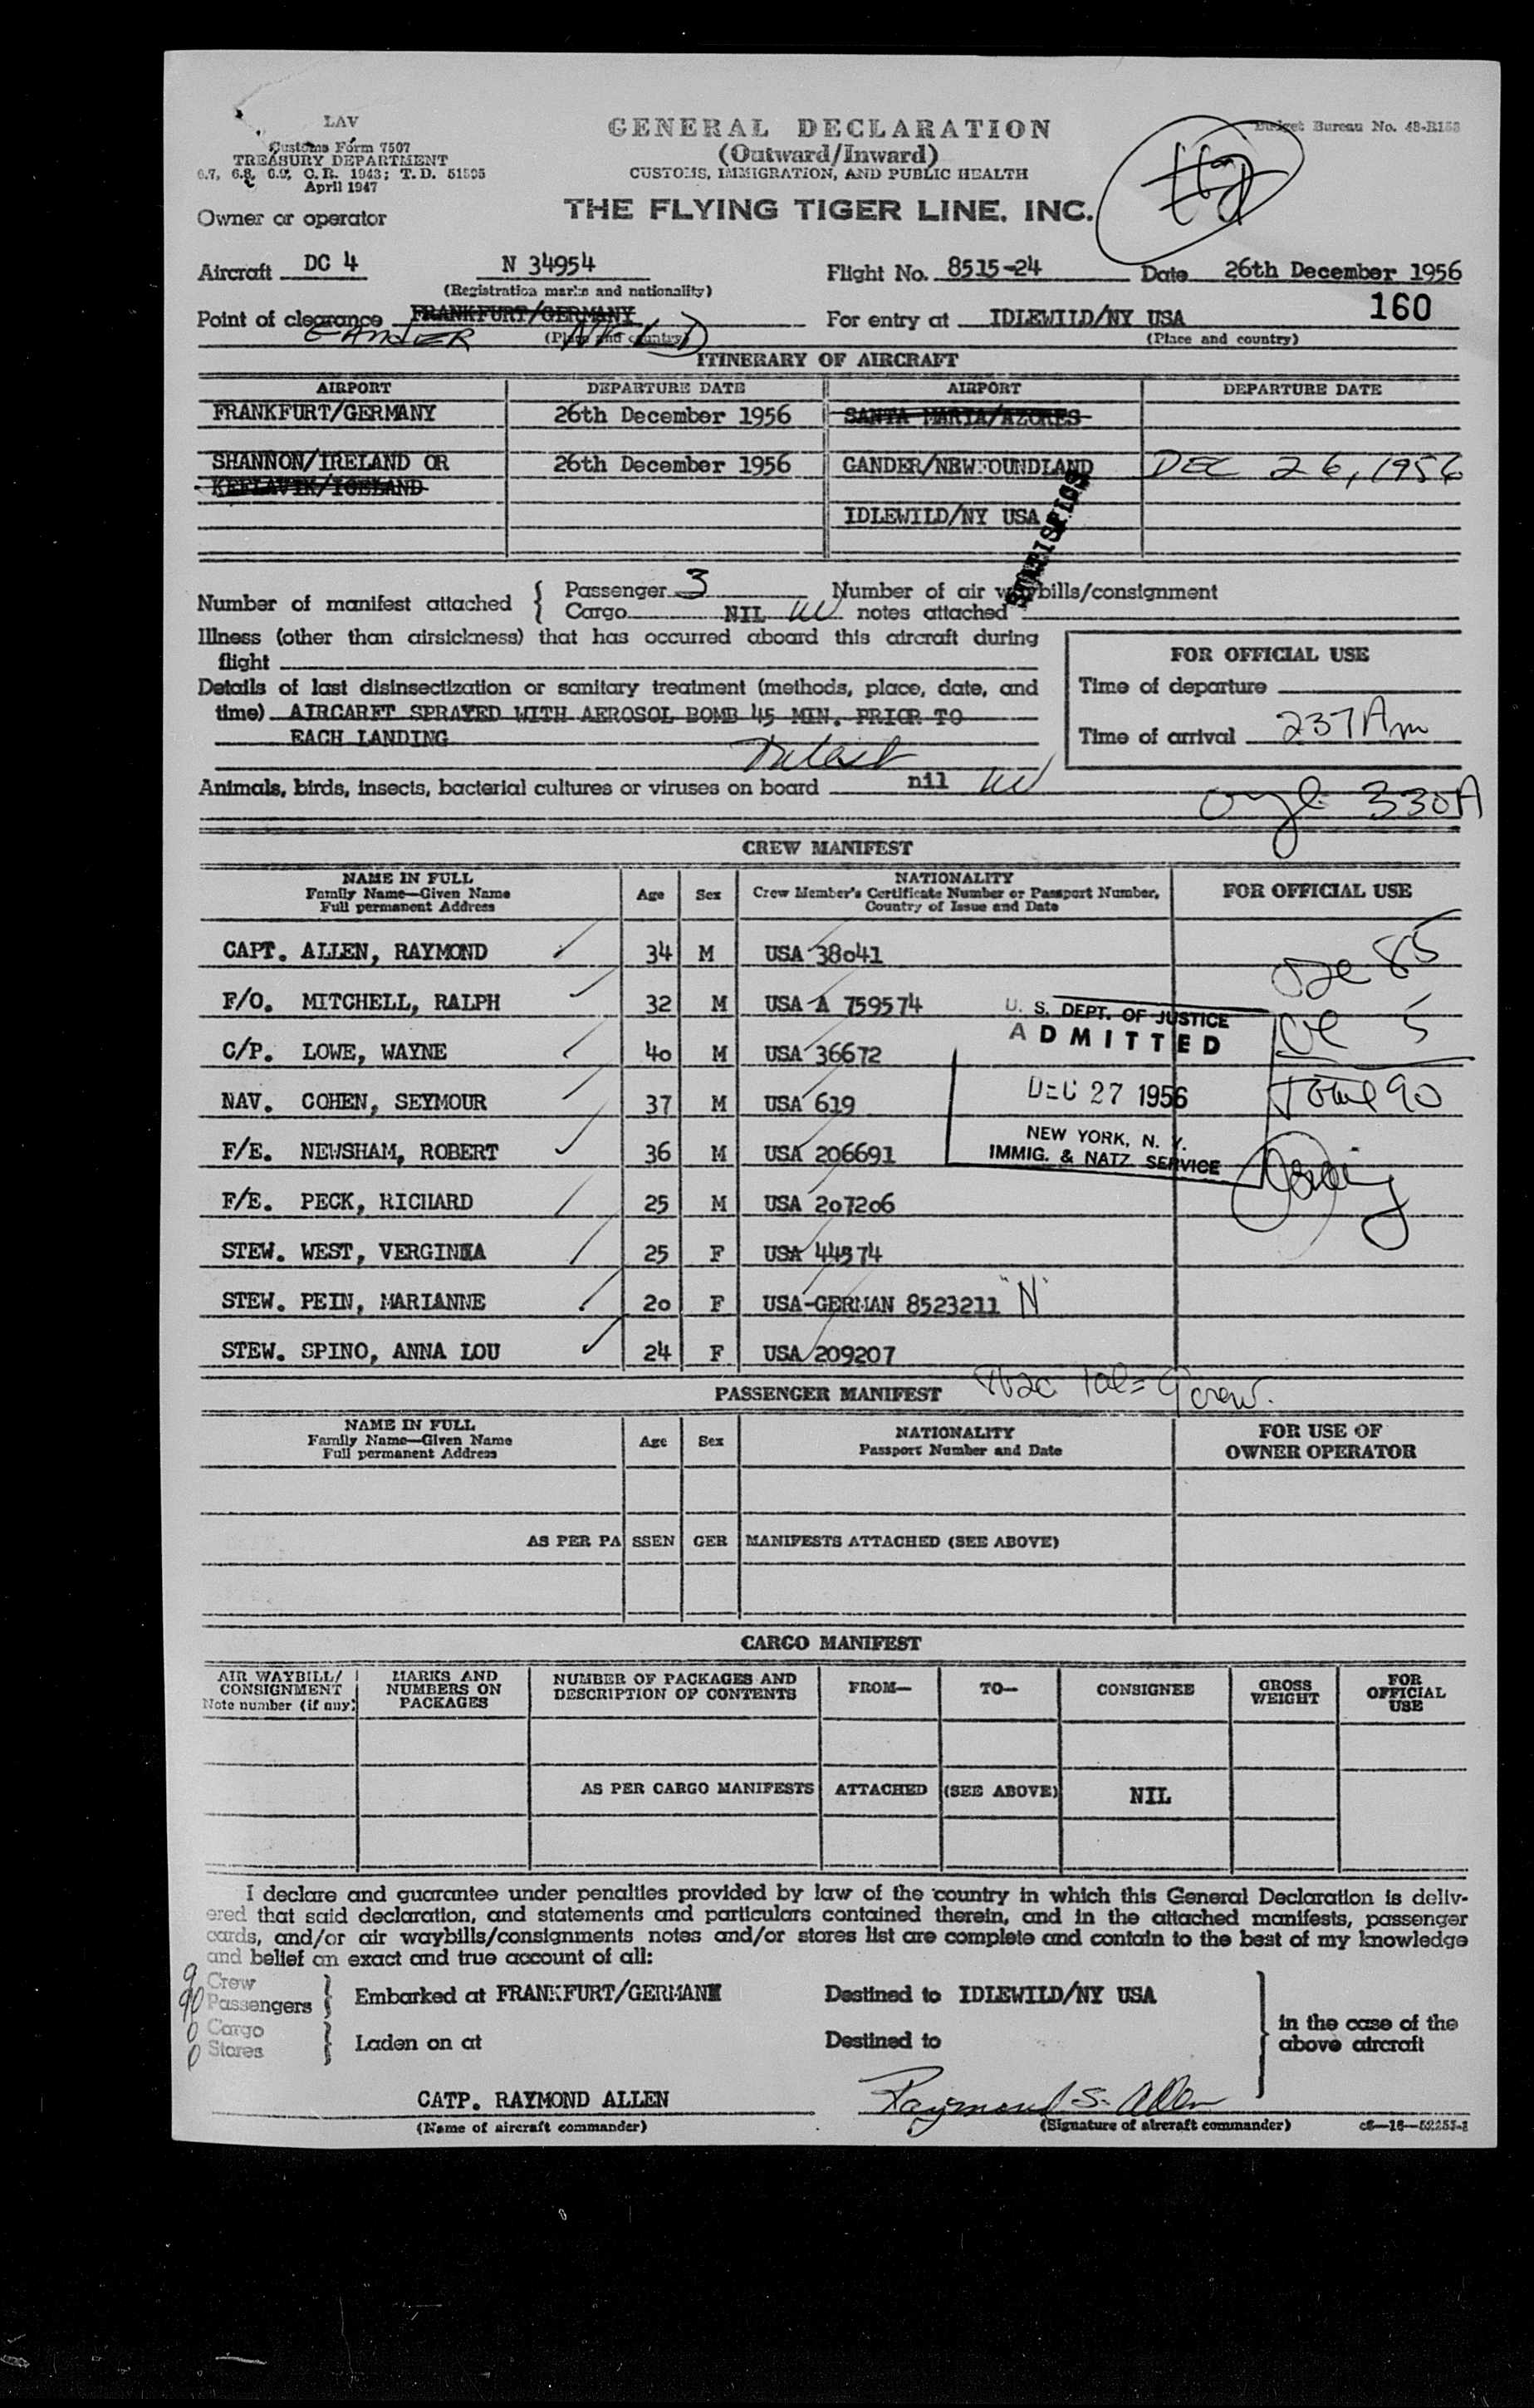 LAV
Customs Form 7507
TREASURY DEPARTMENT
6.7, 6.8, 6.9, C.R. 1943; T.D. 51505
April 1947
GENERAL DECLARATION
(Outward/Inward)
CUSTOMS, IMMIGRATION, AND PUBLIC HEALTH
Budget Bureau No. 48-R158
Owner or operator
THE FLYING TIGER LINE, INC.
Aircraft DC 4 N 34954 Flight No. 8515-24 Date 26th December 1956
(Registration marks and nationality)
160
Point of clearance FRANKFURT/GERMANY For entry at IDLEWILD/NY USA
GANDER NFLD
(Place and country) (Place and country)
ITINERARY OF AIRCRAFT
AIRPORT DEPARTURE DATE AIRPORT DEPARTURE DATE
FRANKFURT/GERMANY 26th December 1956 SANTA MARIA/AZORES
SHANNON/IRELAND OR 26th December 1956 GANDER/NEWFOUNDLAND DEC 26, 1956
KEFLAVIK/ICELAND
IDLEWILD/NY USA
STATISTICS
Number of manifest attached { Passenger 3 Number of air waybills/consignment
Cargo NIL notes attached
Illness (other than airsickness) that has occurred aboard this aircraft during
flight
FOR OFFICIAL USE
Details of last disinsectization or sanitary treatment (methods, place, date, and
Time of departure
time) AIRCARFT SPRAYED WITH AEROSOL BOMB 45 MIN. PRIOR TO
EACH LANDING
Time of arrival 237 Am
Animals, birds, insects, bacterial cultures or viruses on board nil
330A
CREW MANIFEST
NAME IN FULL
Family Name—Given Name
Full permanent Address
Age Sex
NATIONALITY
Crew Member's Certificate Number or Passport Number,
Country of Issue and Date
FOR OFFICIAL USE
CAPT. ALLEN, RAYMOND 34 M USA 38041
85
F/O. MITCHELL, RALPH 32 M USA A 759574
C/P. LOWE, WAYNE 40 M USA 36672
5
NAV. COHEN, SEYMOUR 37 M USA 619
Total 90
F/E. NEWSHAM, ROBERT 36 M USA 206691
F/E. PECK, RICHARD 25 M USA 207206
STEW. WEST, VERGINIA 25 F USA 44574
STEW. PEIN, MARIANNE 20 F USA-GERMAN 8523211 "N"
STEW. SPINO, ANNA LOU 24 F USA 209207
U. S. DEPT. OF JUSTICE
ADMITTED
DEC 27 1956
NEW YORK, N. Y.
IMMIG. & NATZ SERVICE
PASSENGER MANIFEST
9 crew.
NAME IN FULL
Family Name—Given Name
Full permanent Address
Age Sex
NATIONALITY
Passport Number and Date
FOR USE OF
OWNER OPERATOR
AS PER PASSENGER MANIFESTS ATTACHED (SEE ABOVE)
CARGO MANIFEST
AIR WAYBILL/
CONSIGNMENT
Note number (if any)
MARKS AND
NUMBERS ON
PACKAGES
NUMBER OF PACKAGES AND
DESCRIPTION OF CONTENTS
FROM— TO— CONSIGNEE
GROSS
WEIGHT
FOR
OFFICIAL
USE
AS PER CARGO MANIFESTS ATTACHED (SEE ABOVE) NIL
I declare and guarantee under penalties provided by law of the country in which this General Declaration is deliv-
ered that said declaration, and statements and particulars contained therein, and in the attached manifests, passenger
cards, and/or air waybills/consignments notes and/or stores list are complete and contain to the best of my knowledge
and belief an exact and true account of all:
9 Crew
90 Passengers } Embarked at FRANKFURT/GERMANY Destined to IDLEWILD/NY USA
0 Cargo
0 Stores } Laden on at Destined to
in the case of the
above aircraft
CATP. RAYMOND ALLEN Raymond S. Allen
(Name of aircraft commander) (Signature of aircraft commander) c6—16—52253-1